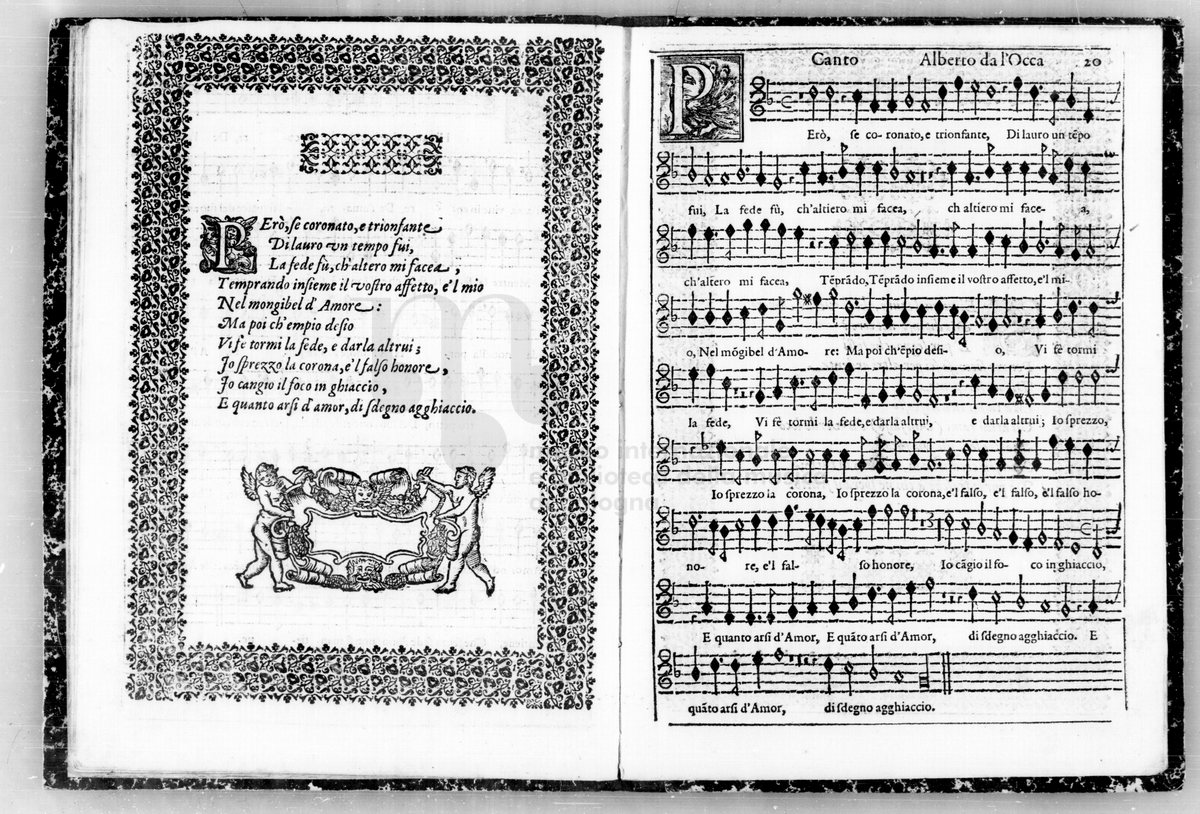 PErò, se coronato, e trionfante
Di lauro vn tempo fui,
La fede fù, ch'altero mi facea,
Temprando insieme il vostro affetto, e'l mio
Nel mongibel d'Amore:
Ma poi ch'empio desio
Vi fè tormi la fede, e darla altrui;
Io sprezzo la corona, e'l falso honore,
Io cangio il foco in ghiaccio,
E quanto arsi d'amor, di sdegno agghiaccio.
Canto Alberto da l'Occa 20
PErò, se co- ronato, e trionfante, Di lauro un tẽpo
fui, La fede fù, ch'altiero mi facea, ch altiero mi face- a,
ch'altero mi facea, Tẽprãdo, Tẽprãdo insieme il vostro affetto, e'l mi-
o, Nel mõgibel d'Amo- re: Ma poi ch'ẽpio desi- o, Vi fè tormi
la fede, Vi fè tormi la fede, e darla altrui, e darla altrui; Io sprezzo,
Io sprezzo la corona, Io sprezzo la corona, e'l falso, e'l falso, e'l falso ho-
no- re, e'l fal- so honore, Io cãgio il fo- co in ghiaccio,
E quanto arsi d'Amor, E quãto arsi d'Amor, di sdegno agghiaccio. E
quãto arsi d'Amor, di sdegno agghiaccio.